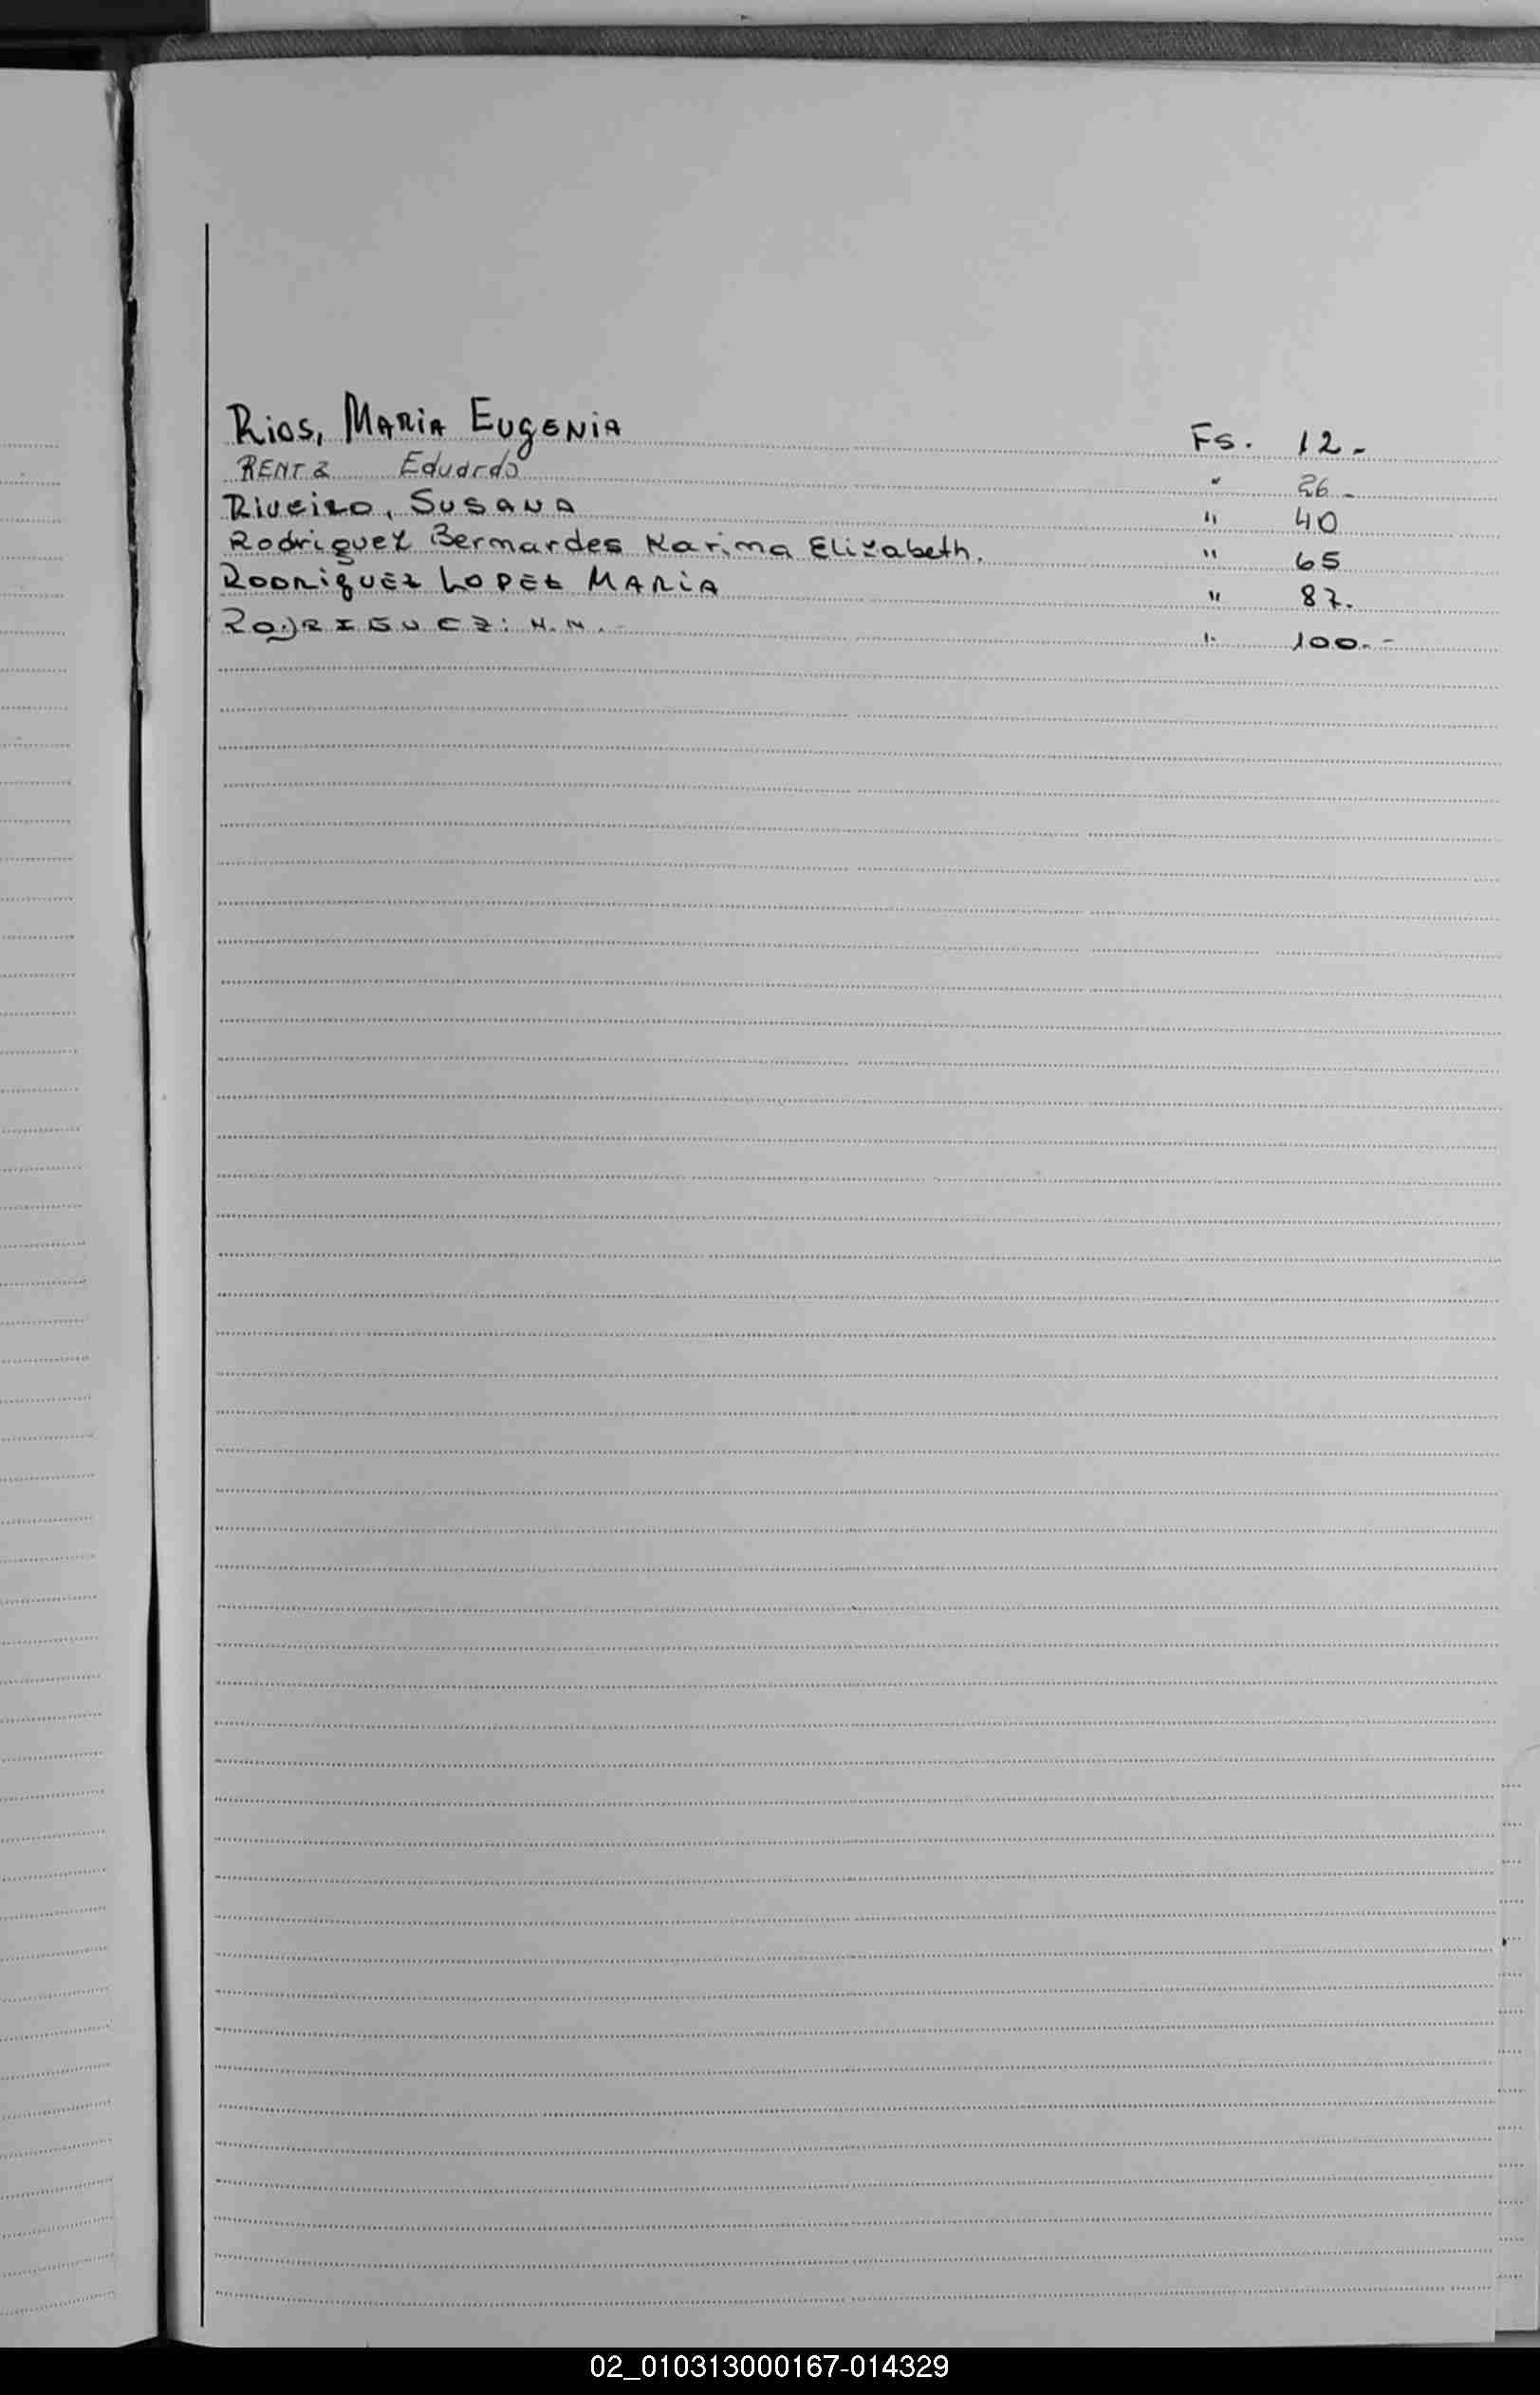 Rios, MARiA EUgENiA Fs. 12.-
RENTZ Eduardo " 26.-
Riveiro, Susana " 40
Rodriguez Bermardes Karima Elizabeth. " 65
RODRiguEz LOPEz MARiA " 87.
RODRIGUEZ: N.N.- " 100.-
02_010313000167-014329